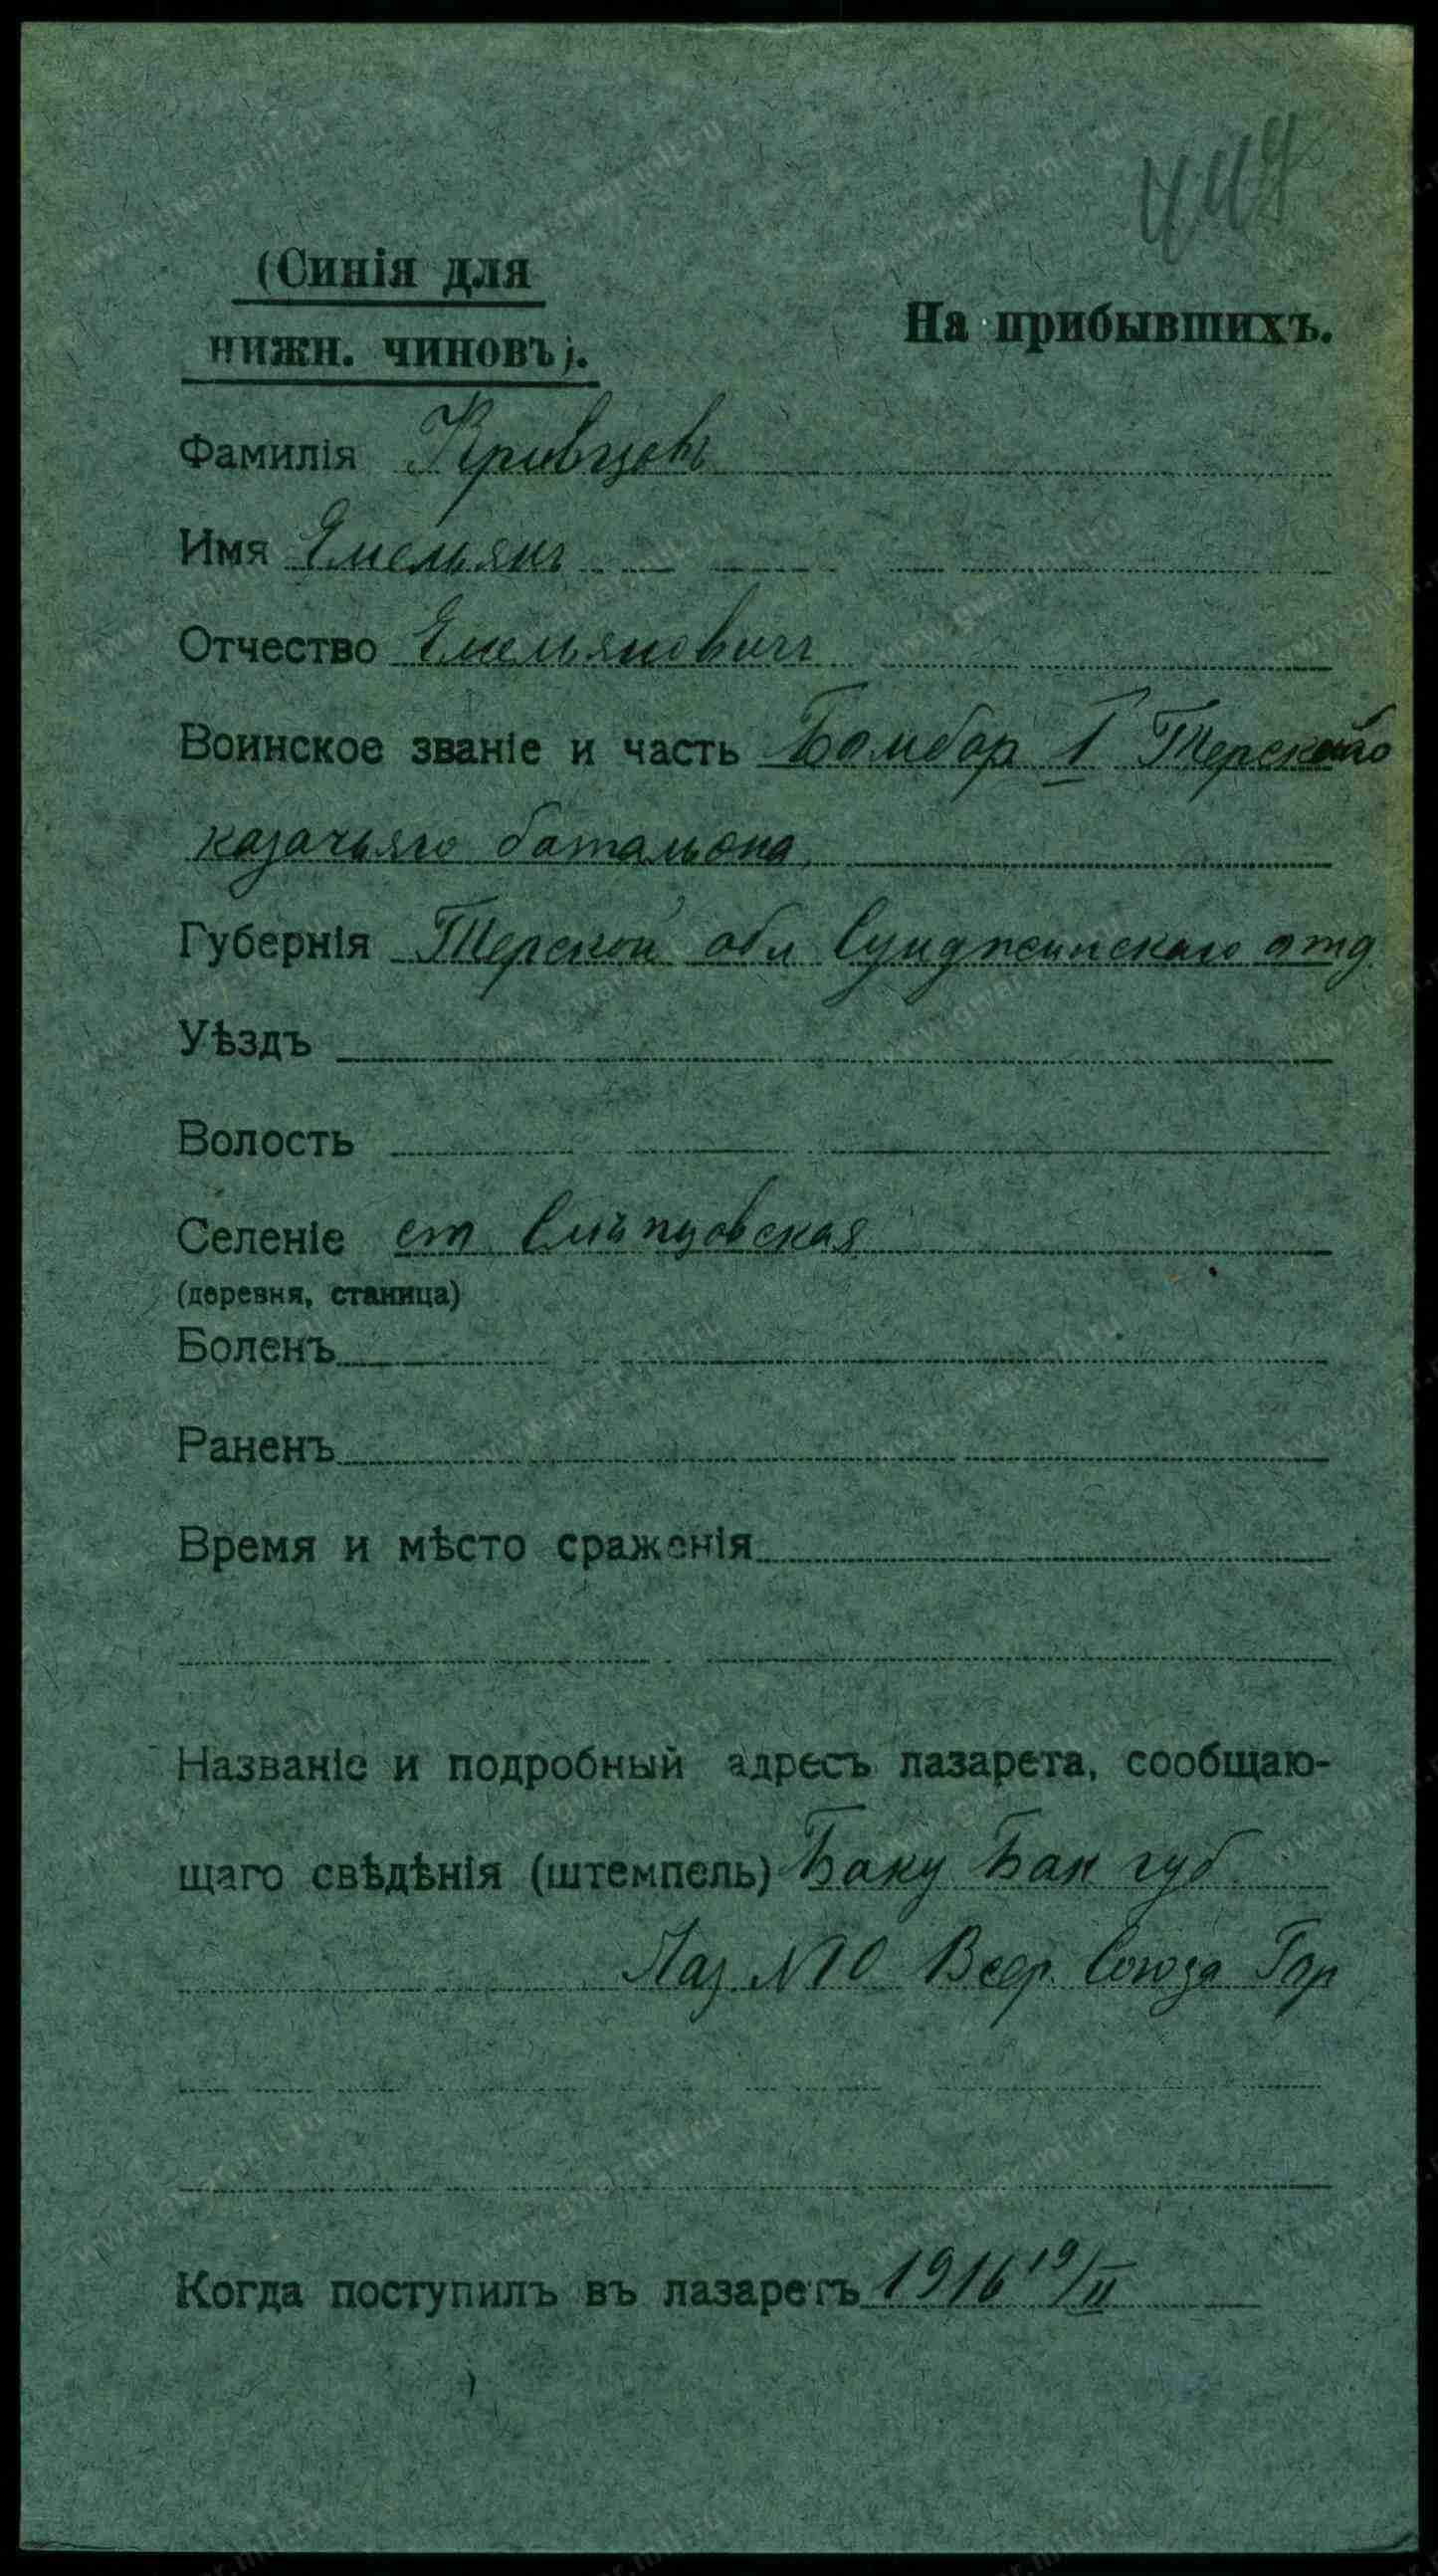 449
(Синія для
нижн. чиновъ).
На прибывшихъ.
Фамилія Кривцовъ
Имя Емельянъ
Отчество Емельяновичъ
Воинское званіе и часть Бомбар 1 Терскаго
казачьяго батальона
Губернія Терской обл Сунджинскаго отд
Уѣздъ
Волость
Селеніе ст Слѣпцовская
(деревня, станица)
Боленъ
Раненъ
Время и мѣсто сраженія
Названіе и подробный адресъ лазарета, сообщаю-
щаго свѣдѣнія (штемпель) Баку Бак губ
Лаз №10 Всер. Союза Гор
Когда поступилъ въ лазаретъ 1916 19/II